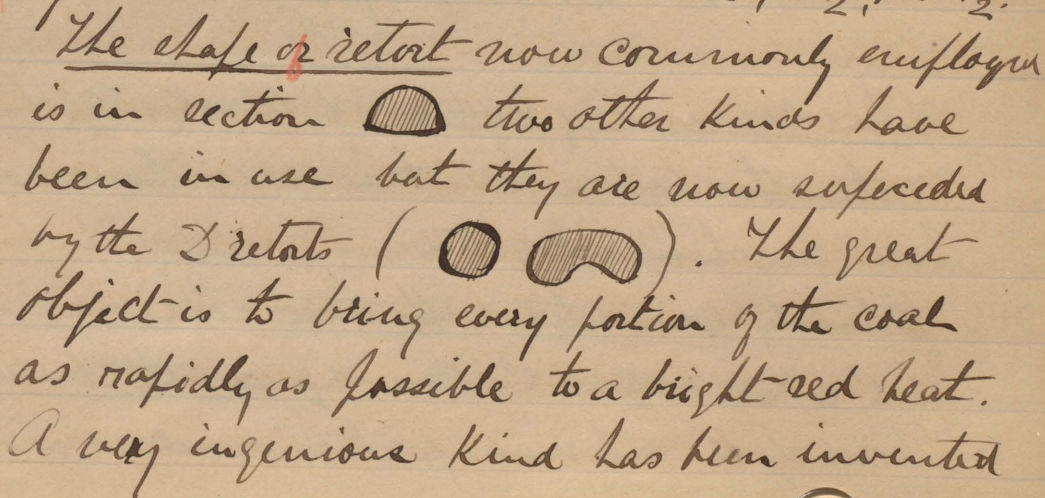 The shape of retort now commonly employed
is in section two other kinds have
been in use but they are now supeceded
by the D retorts ( ). The great
object is to bring every portion of the coal
as rapidly as possible to a bright red heat.
A very ingenious kind has been invented